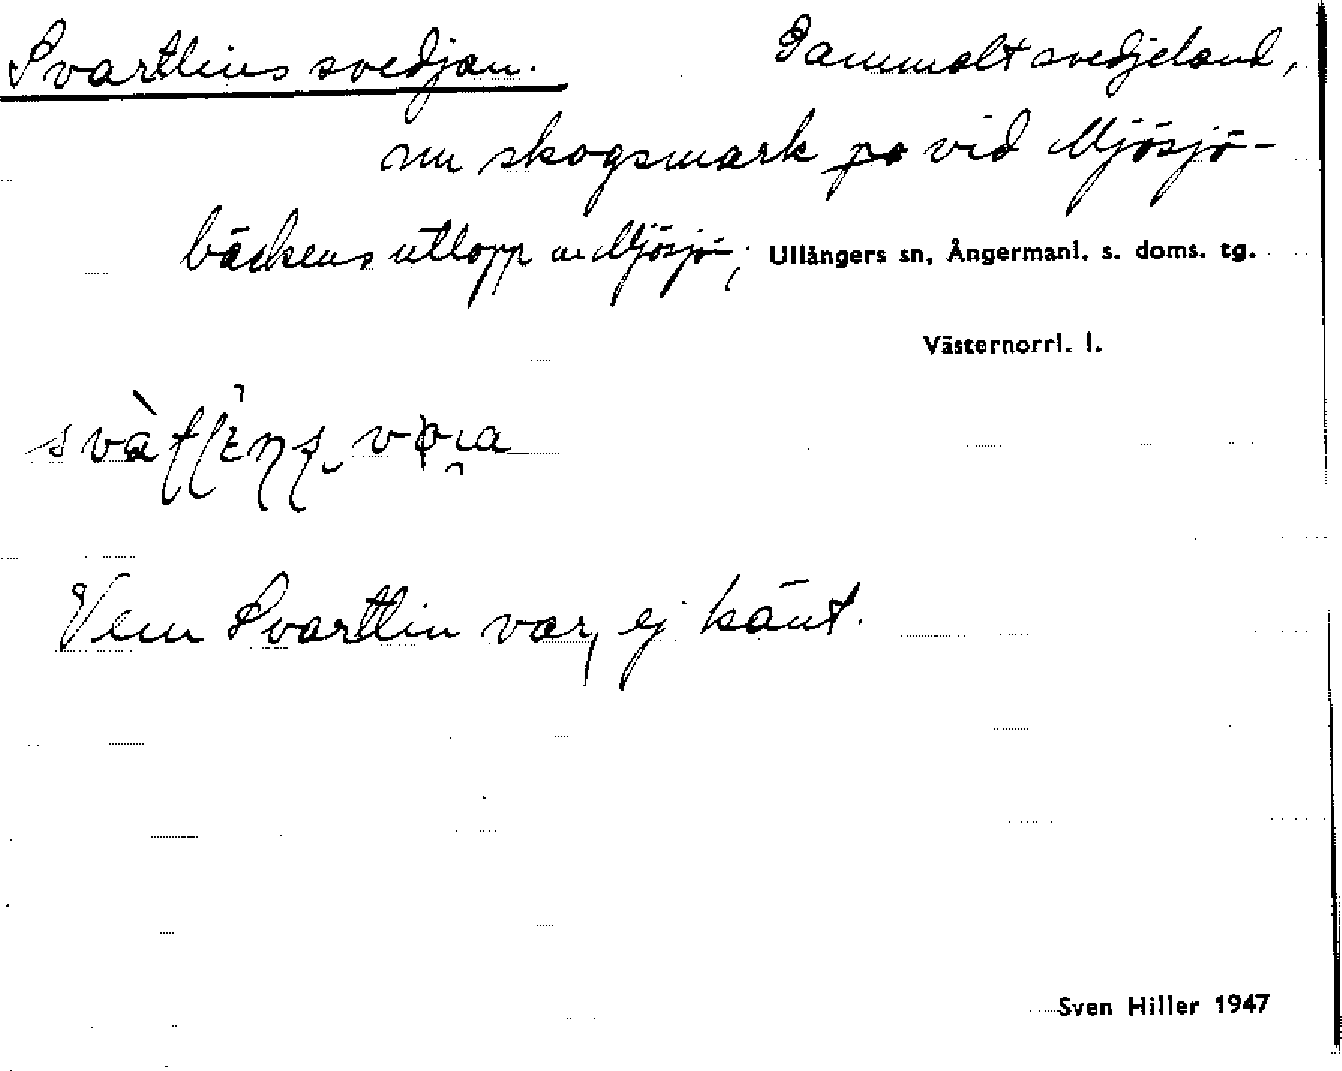 Svartlins svedjan. Gammalt svedjeland,
nu skogsmark på vid Mjösjö-
bäckens utlopp ur Mjösjö-; Ullångers sn, Ångermanl. s. doms. tg.
Västernorrl. l.
Vem Svartlin var, ej känt.
Sven Hiller 1947